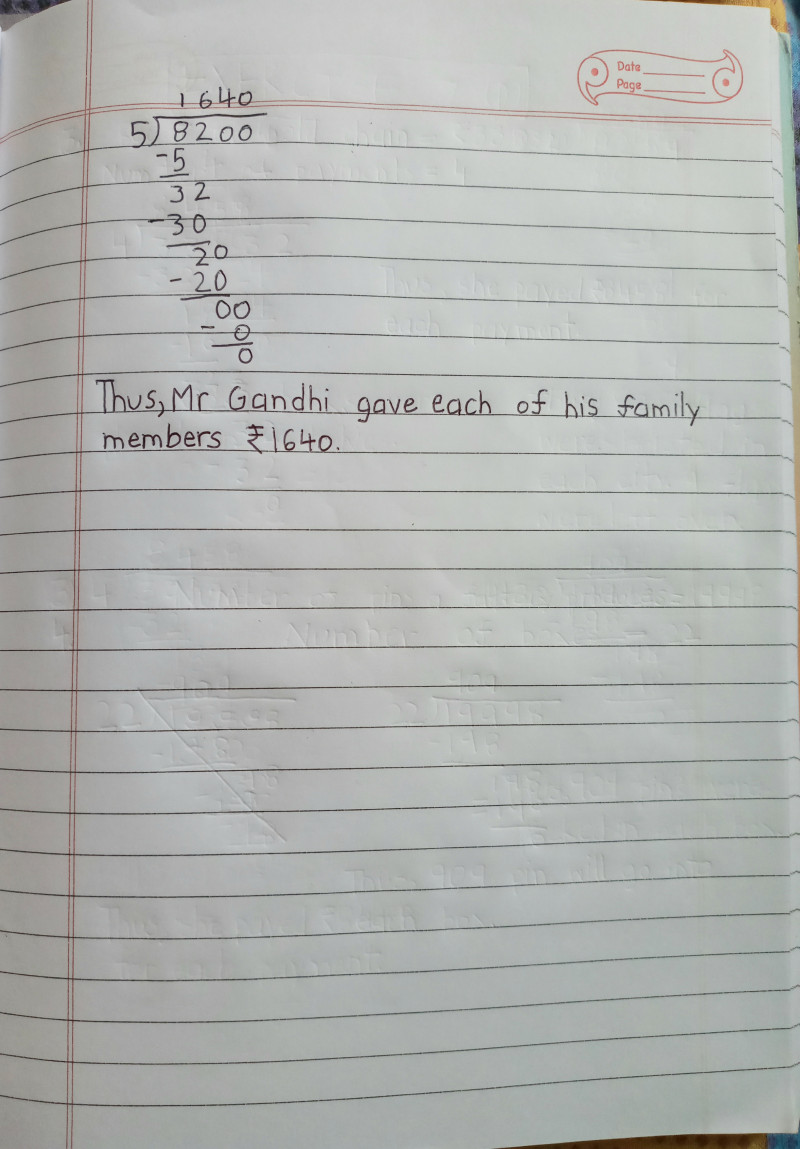 Date
Page
1640
5)8200
-5
32
-30
20
-20
00
- 0
0
Thus, Mr Gandhi gave each of his family
members ₹1640.